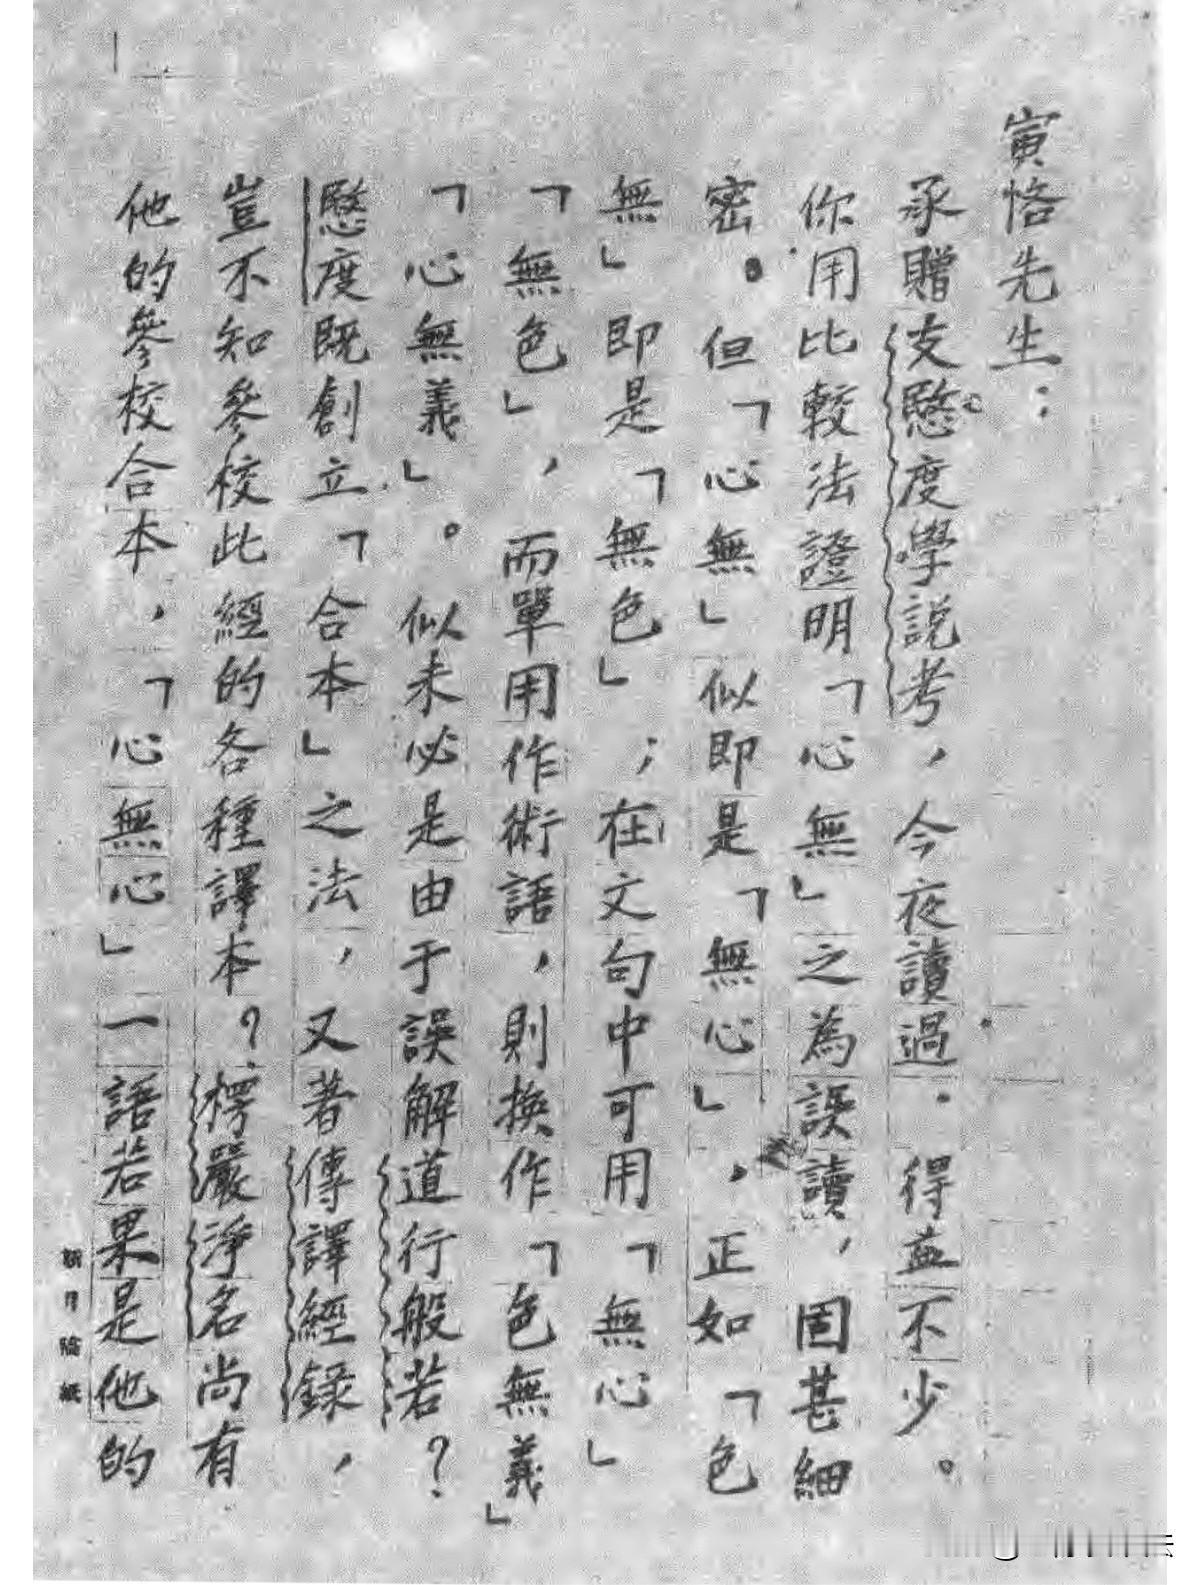 寅恪先生：
承贈支愍度學說考，今夜讀過．得益不少。
你用比較法證明「心無」之為誤讀，固甚細
密。但「心無」似即是「無心」，正如「色
無」即是「無色」；在文句中可用「無心」
「無色」，而單用作術語，則換作「色無義」
「心無義」。似未必是由于誤解道行般若？
愍度既創立「合本」之法，又著傳譯經錄，
豈不知參校此經的各種譯本？楞嚴淨名尚有
他的參校合本，「心無心」一語若果是他的
新月稿紙